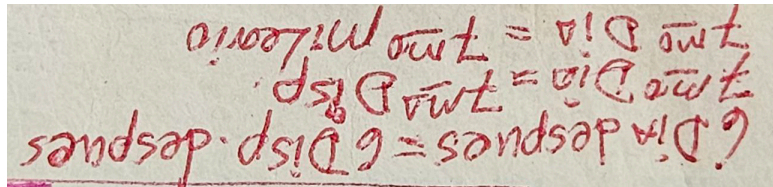 6 Dia despues = 6 Disp. despues
7mo Dia = 7mo Disp.
7mo Dia = 7mo Milenio